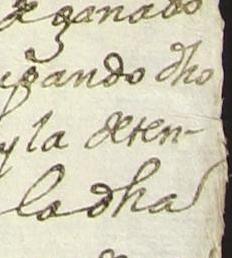 ganado
gando dho
y la deten-
la dha